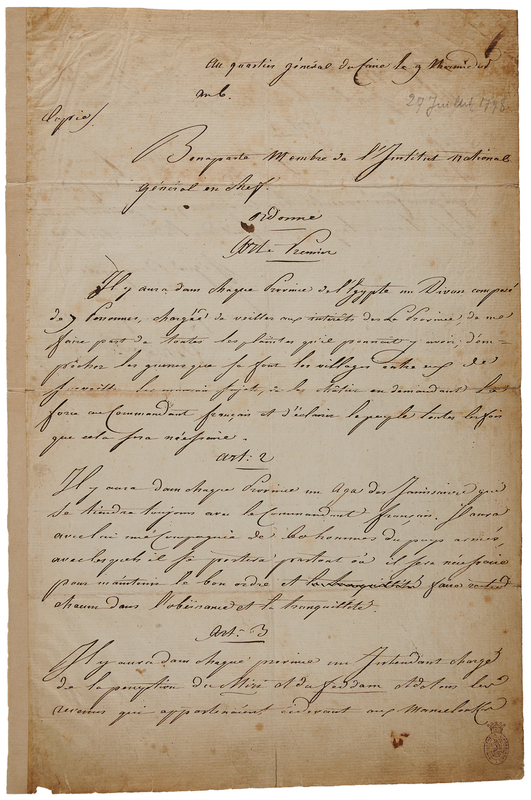 Au quartier général du Caire le 9 Thermidor
an 6.
27 Juillet 1798
Copie/.
Bonaparte Membre de l'Institut National
Général en Chef.
Ordonne
Art. Premier
Il y aura dans chaque Province de l'Egypte un Divan composé
de 7 Personnes, chargées de veiller aux intérêts des la Province, de me
faire part de toutes les plaintes qu'il pourrait y avoir, d'em-
pêcher les guerres que se font les villages entre eux, de
surveiller les mauvais sujets, de les châtier en demandant la
force au Commandant français et d'éclairer le peuple toutes les fois
que cela sera nécessaire.
Art: 2
Il y aura dans chaque Province un Aga des Janissaires qui
se tiendra toujours avec le Commandant français. Il aura
avec lui une Compagnie de 60 hommes du pays armés
avec lesquels il se portera partout où il sera nécessaire
pour maintenir le bon ordre et la tranquillité faire rester
chacun dans l'obéissance et la tranquillité.
Art: 3
Il y aura dans chaque province un Intendant chargé
de la perception du Miri et du feddam et de tous les
revenus qui appartenaient cidevant aux Mameloucks